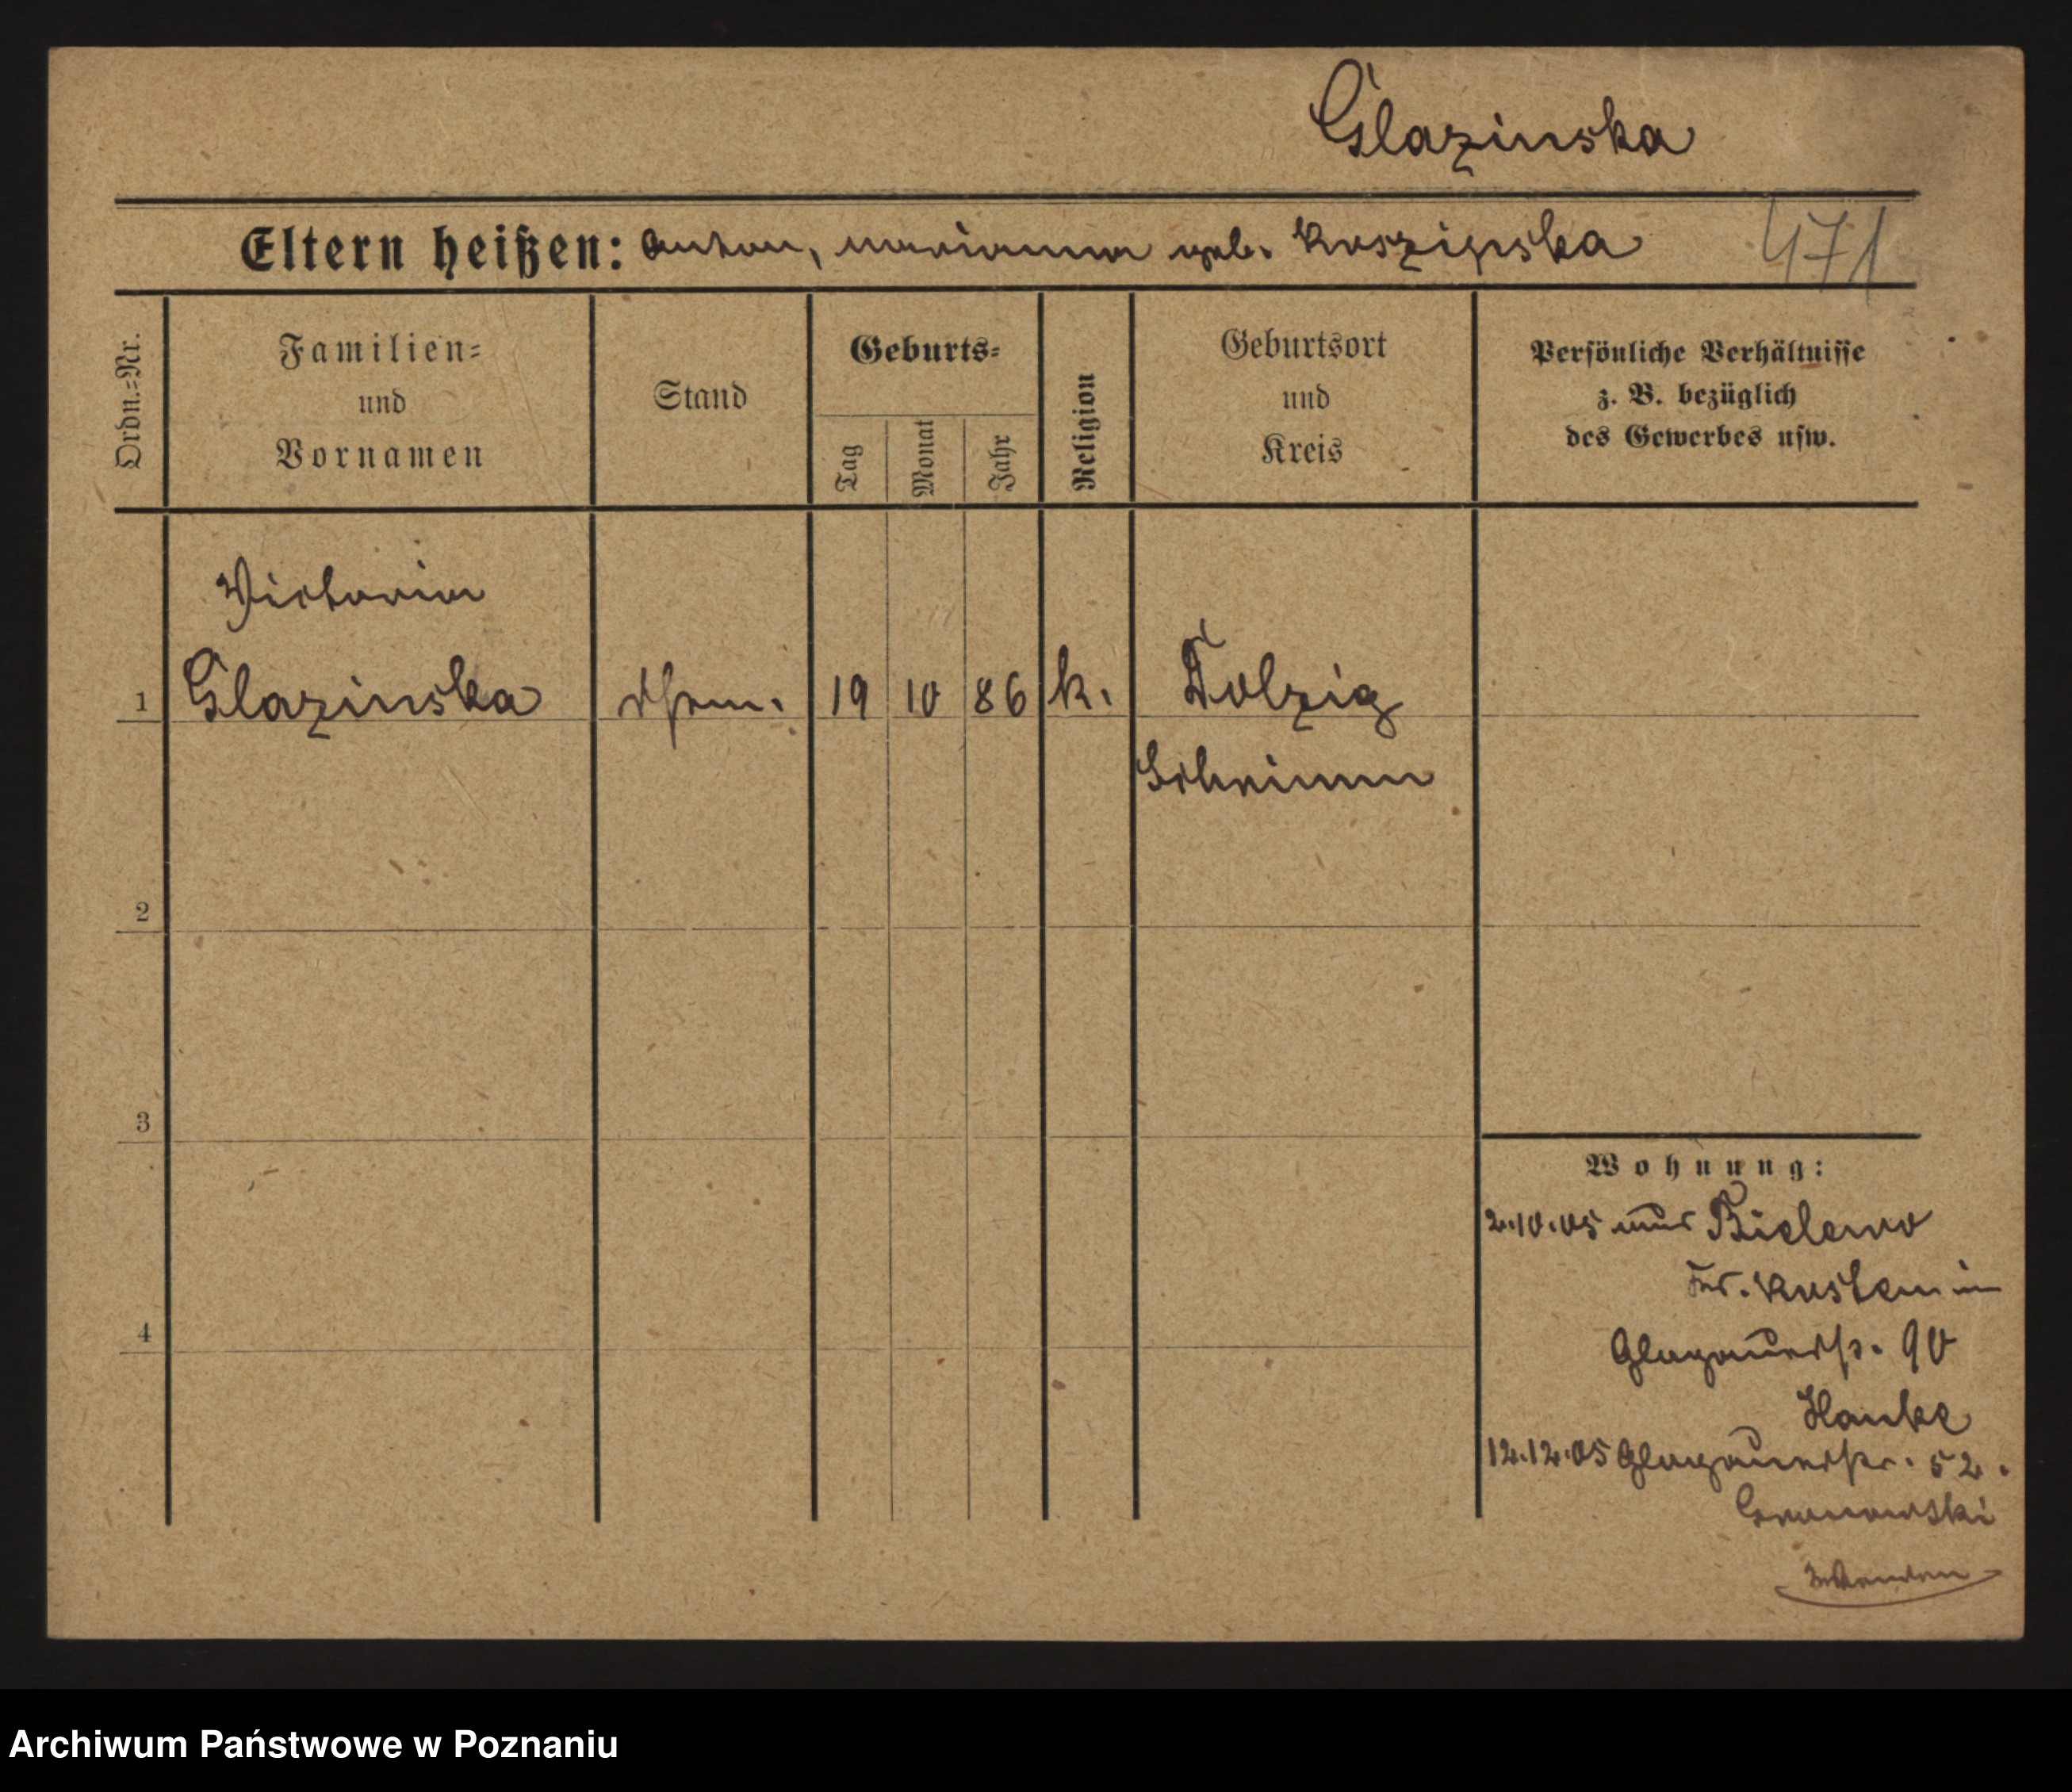 Glazinska
Eltern heißen: Anton, Marianna geb. Koszipska
471
Ordn.=Nr.
Familien=
und
Vornamen
Stand
Geburts=
Tag
Monat
Jahr
Religion
Geburtsort
und
Kreis
Persönliche Verhältnisse
z. B. bezüglich
des Gewerbes usw.
Victoria
1 Glazinska 19 10 86 k. Dolzig
Schrimm
2
3
4
Wohnung:
2.10.05 aus Bielewo
Kr. Kosten in
Glogauerstr. 90
Hanke
12.12.05 Glogauerstr. 52.
Gronowski
Wenden